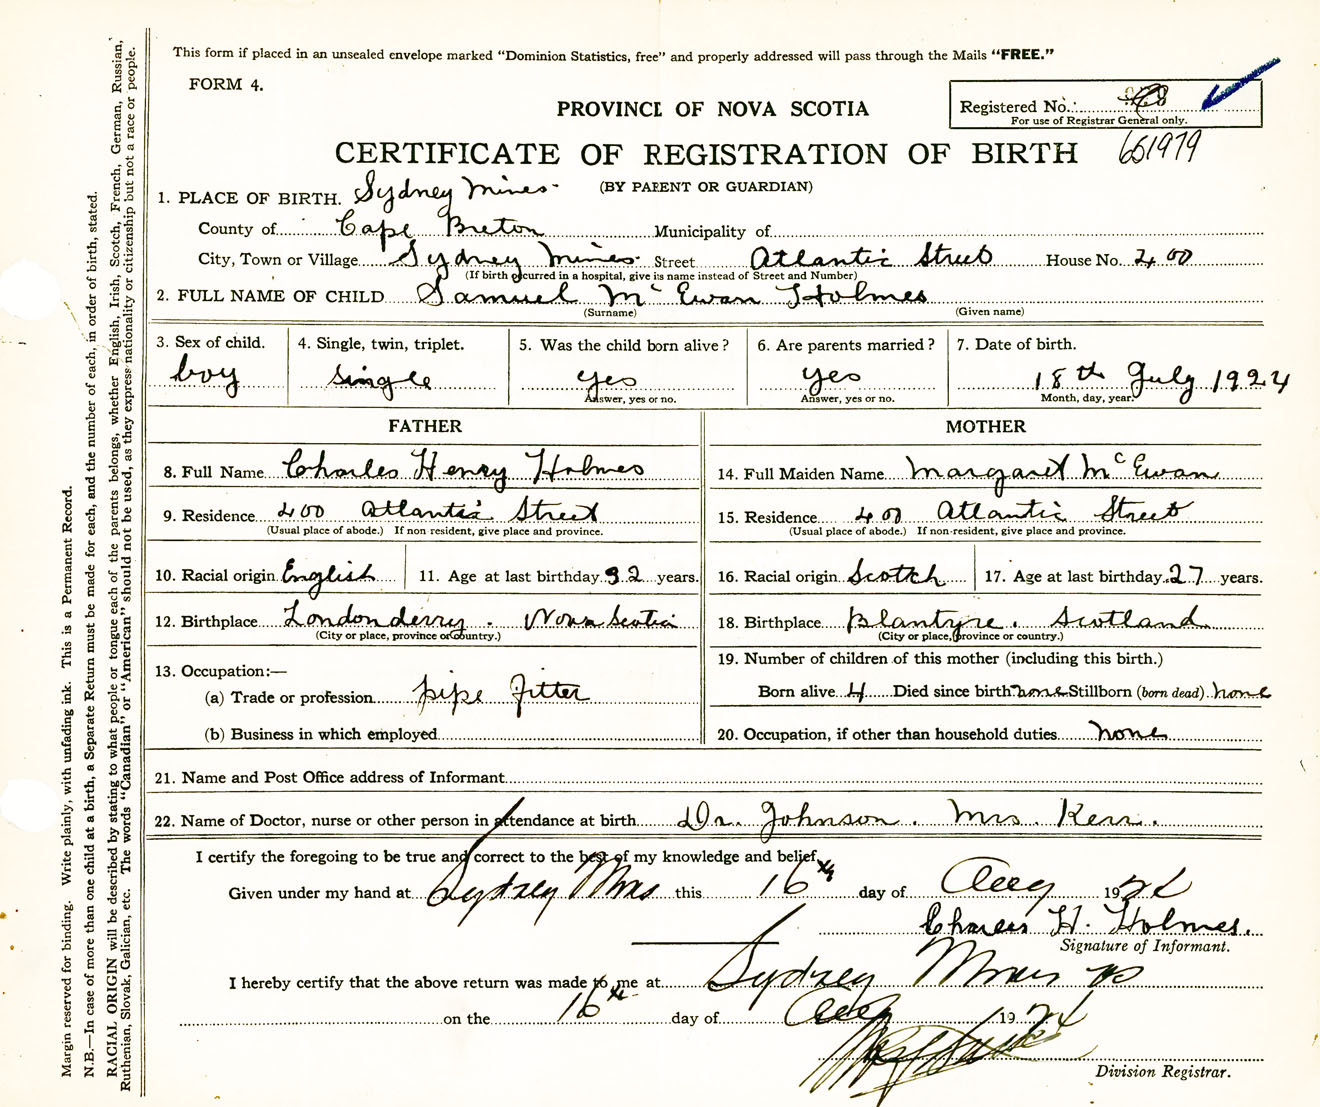 This form if placed in an unsealed envelope marked "Dominion Statistics, free" and properly addressed will pass through the Mails "FREE."
FORM 4.
PROVINCE OF NOVA SCOTIA
Registered No.
For use of Registrar General only.
CERTIFICATE OF REGISTRATION OF BIRTH
651979
(BY PARENT OR GUARDIAN)
1. PLACE OF BIRTH. Sydney Mines.
County of Cape Breton Municipality of
City, Town or Village Sydney Mines. Street Atlantic Street House No. 400
(If birth occurred in a hospital, give is name instead of Street and Number)
2. FULL NAME OF CHILD Samuel Mc Ewan Holmes
(Surname) (Given name)
3. Sex of child. 4. Single, twin, triplet. 5. Was the child born alive? 6. Are parents married? 7. Date of birth.
boy single yes yes 18th July 1924
Answer, yes or no. Answer, yes or no. Month, day, year.
FATHER MOTHER
8. Full Name Charles Henry Holmes 14. Full Maiden Name Margaret McEwan
9. Residence 400 Atlantic Street 15. Residence 400 Atlantic Street
(Usual place of abode.) If non resident, give place and province. (Usual place of abode.) If non-resident, give place and province.
10. Racial origin English 11. Age at last birthday 32 years. 16. Racial origin Scotch 17. Age at last birthday 27 years.
12. Birthplace Londonderry. Nova Scotia 18. Birthplace Blantyre. Scotland
(City or place, province or country.) (City or place, province or country.)
13. Occupation:— 19. Number of children of this mother (including this birth.)
(a) Trade or profession pipe fitter Born alive 4 Died since birth none Stillborn (born dead) none
(b) Business in which employed 20. Occupation, if other than household duties none
21. Name and Post Office address of Informant
22. Name of Doctor, nurse or other person in attendance at birth Dr. Johnson. Mrs. Kerr.
I certify the foregoing to be true and correct to the best of my knowledge and belief.
Given under my hand at Sydney Mines this 16th day of Aug 1924
Charles H. Holmes.
Signature of Informant.
I hereby certify that the above return was made to me at Sydney Mines
on the 16th day of Aug 1924
Division Registrar.
Margin reserved for binding. Write plainly, with unfading ink. This is a Permanent Record.
N.B.—In case of more than one child at a birth, a Separate Return must be made for each, and the number of each, in order of birth, stated.
RACIAL ORIGIN will be described by stating to what people or tongue each of the parents belongs, whether English, Irish, Scotch, French, German, Russian,
Ruthenian, Slovak, Galician, etc. The words "Canadian" or "American" should not be used, as they express nationality or citizenship but not a race or people.